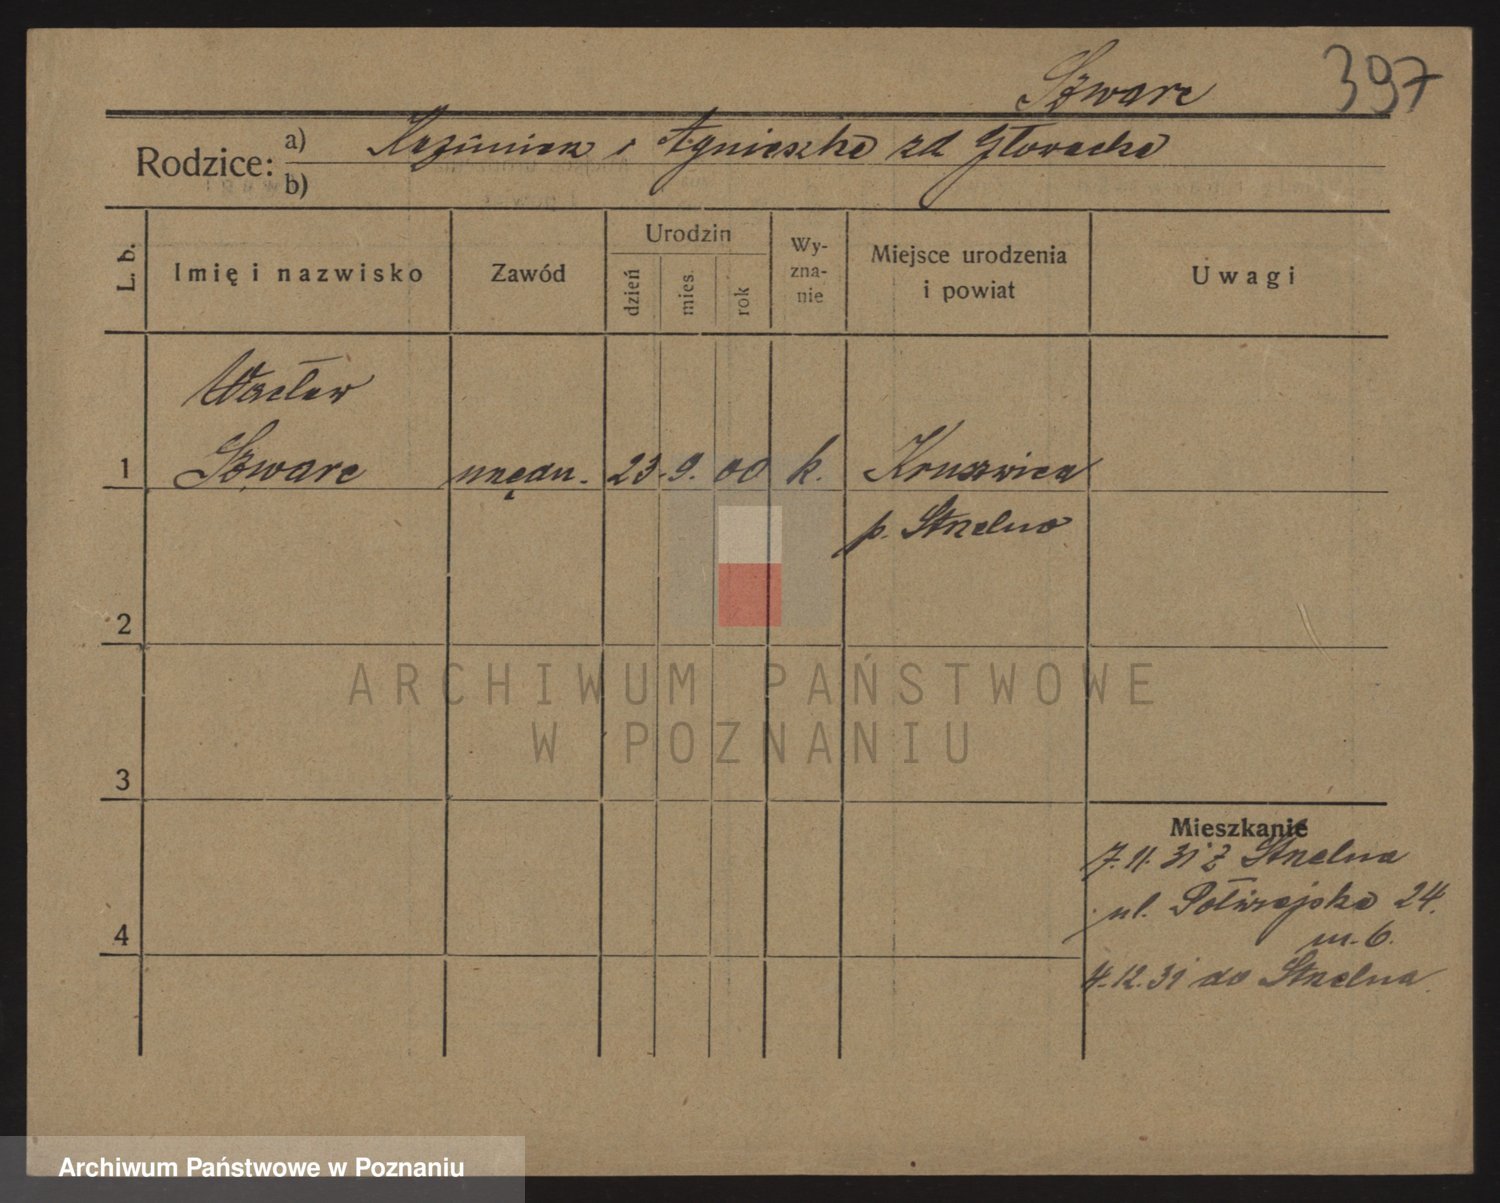 Szwarc 397
Rodzice: a) Kazimierz i Agnieszka zd Głowacka
b)
L. b. Imię i nazwisko Zawód Urodzin dzień mies. rok Wyznanie Miejsce urodzenia i powiat Uwagi
Wacław
1 Szwarc urzędn. 23. 9. 00 k. Kruszwica
p. Strzelno
2
ARCHIWUM PAŃSTWOWE
W POZNANIU
3
Mieszkanie
7.11.31 z Strzelna
ul. Półwiejska 24.
4
m. 6.
4.12.31 do Strzelna.
Archiwum Państwowe w Poznaniu